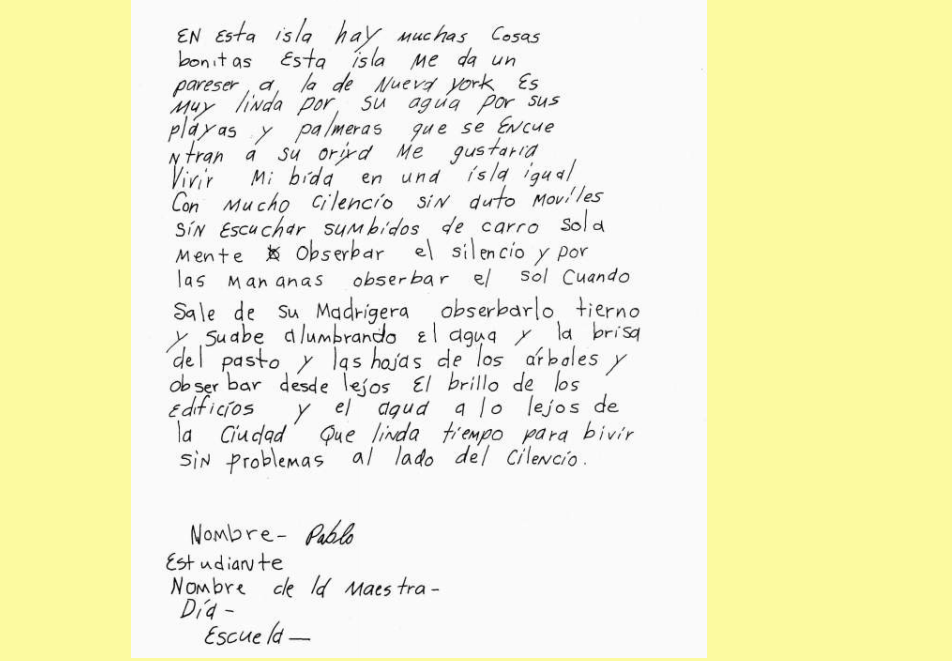 EN Esta isla hay muchas Cosas
bonitas Esta ísla Me da un
pareser a la de Nueva york Es
Muy linda por su agua por sus
pláyas y palmeras que se ENcue
Ntran a su orixd Me gustaria
Vivir Mi bida en una ísla igual
Con Mucho Cilencio SiN auto Moviles
SíN EScuchar sumbidos de carro Sola
Mente Obserbar el silencio y por
las Mananas obserbar el sol Cuando
Sale de su Madrigera obserbarlo tierno
y suabe alumbrando El agua y la brisa
del pasto y las hojas de los árboles y
obserbar desde lejos El brillo de los
Edificíos y el agua a lo lejos de
la Ciudad Que linda tiempo para bivir
SiN problemas al lado del Cilencio.
Nombre- Pablo
Estudiante
Nombre de la Maestra-
Día-
Escuela—